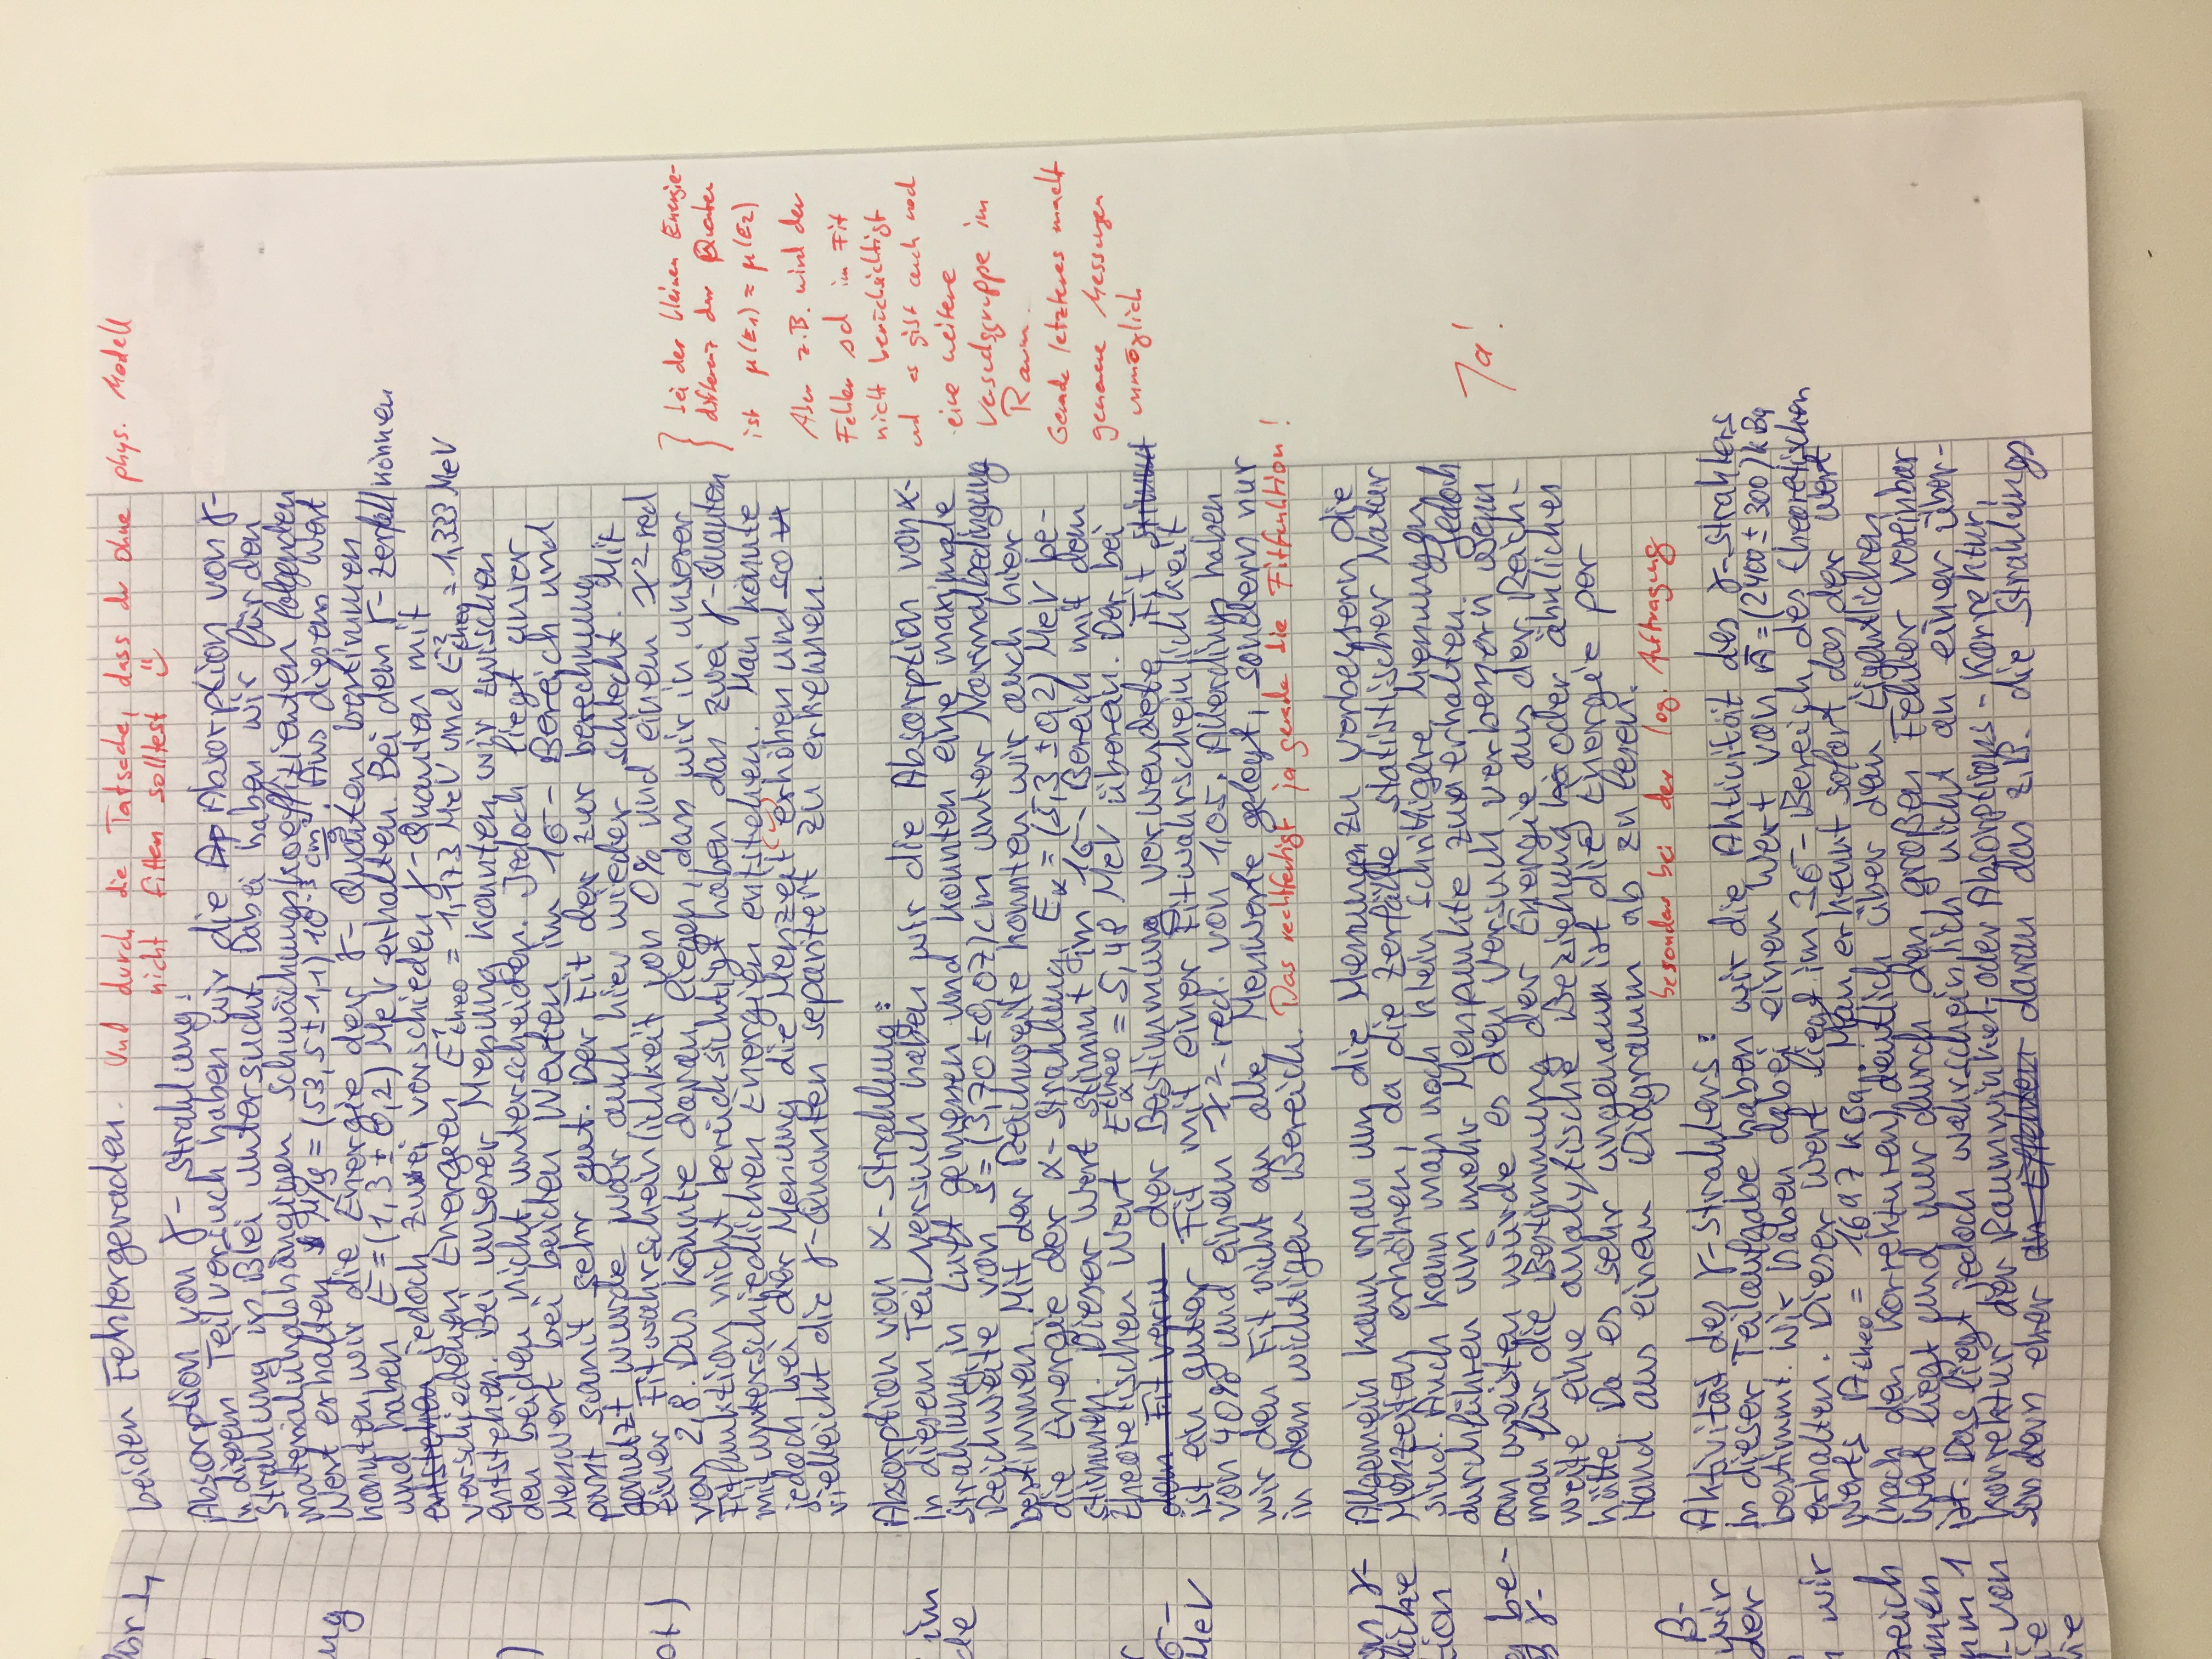 beiden Fehlergeraden. Und durch die Tatsache, dass du ohne phys. Modell
nicht fitten solltest
Absorption von γ-Strahlung:
In diesem Teilversuch haben wir die A̶p̶ Absorption von γ-
Strahlung in Blei untersucht. Dabei haben wir für den
materialunabhängigen Schwächungskoeffizienten folgenden
Wert erhalten μ/ρ = (53,5 ± 1,1) 10⁻³ cm²/g. Aus diesem Wert
konnten wir die Energie der γ-Quanten bestimmen
und haben E = (1,3 ± 0,2) MeV erhalten. Bei dem γ-Zerfall können
e̶n̶t̶s̶t̶e̶h̶e̶n̶ jedoch zwei verschieden γ-Quanten mit
verschiedenen Energien E¹theo = 1,173 MeV und E²theo = 1,333 MeV
entstehen. Bei unserer Messung konnten wir zwischen
den beiden nicht unterscheiden. Jedoch liegt unser
Messwert bei beiden Werten im 1σ-Bereich und
passt somit sehr gut. Der Fit der zur berechnung
genutzt wurde war auch hier wieder schlecht. Mit
einer Fitwahrscheinlichkeit von 0% und einem χ²-red
von 2,8. Das könnte daran liegen, dass wir in unserer
Fitfunktion nicht berücksichtigt haben das zwei γ-Quanten
mit unterschiedlichen Energien entstehen. Man könnte
jedoch bei der Messung die Messzeit erhöhen und so
vielleicht die γ-Quanten separiert zu erkennen.
bei der kleinen Energie-
differenz der Quanten
ist μ(E1) ≈ μ(E2)
Aber z.B. wird der
Fehler sd im Fit
nicht berücksichtigt
und es gibt auch noch
eine weitere
Versuchsgruppe im
Raum.
Gerade letzteres macht
genaue Messungen
unmöglich
Absorption von α-Strahlung:
In diesem Teilversuch haben wir die Absorption von α-
Strahlung in Luft gemessen und konnten eine maximale
Reichweite von s = (3,70 ± 0,07) cm unter Normalbedingung
bestimmen. Mit der Reichweite konnten wir auch hier
die Energie der α-Strahlung Eα = (5,3 ± 0,2) MeV be-
stimmen. Dieser Wert stimmt im 1σ-Bereich mit dem
theoretischen Wert Eαtheo = 5,48 MeV überein. Der bei
d̶e̶m̶ F̶i̶t̶ v̶e̶r̶w̶ der Bestimmung verwendete Fit s̶t̶i̶m̶m̶t̶
ist ein guter Fit mit einer Fitwahrscheinlichkeit
von 40% und einem χ²-red. von 1,05. Allerdings haben
wir den Fit nicht an alle Messwerte gelegt, sondern nur
in dem wichtigen Bereich. Das rechtfertigt ja gerade die Fitfunktion!
Allgemein kann man um die Messungen zu verbessern die
Messzeiten erhöhen, da die Zerfälle statistischer Natur
sind. Auch kann man noch klein schrittigere Messungen
durchführen um mehr Messpunkte zu erhalten. Jedoch
am meisten würde es den Versuch verbessern wenn
man für die Bestimmung der Energie aus der Reich-
weite eine analytische Beziehung oder ähnliches
hätte. Da es sehr ungenau ist die Energie per
Hand aus einem Diagramm ab zu lesen.
besonders bei der log. Auftragung
Ja!
Aktivität des γ-Strahlers:
In dieser Teilaufgabe haben wir die Aktivität des γ-Strahlers
bestimmt. Wir haben dabei einen Wert von Ā = (2400 ± 300) kBq
erhalten. Dieser Wert liegt im 3σ-Bereich des theoretischen
Werts Atheo = 1697 kBq. Man erkennt sofort das der Wert
(nach den Korrekturen) deutlich über dem Eigentlichen
Wert liegt und nur durch den großen Fehler vereinbar
ist. Das liegt jedoch wahrscheinlich nicht an einer über-
korrektur der Raumwinkel- oder Absorptions-Korrektur,
sondern eher a̶n̶ E̶f̶f̶e̶k̶t̶e̶n̶ daran das z.B. die Strahlungs